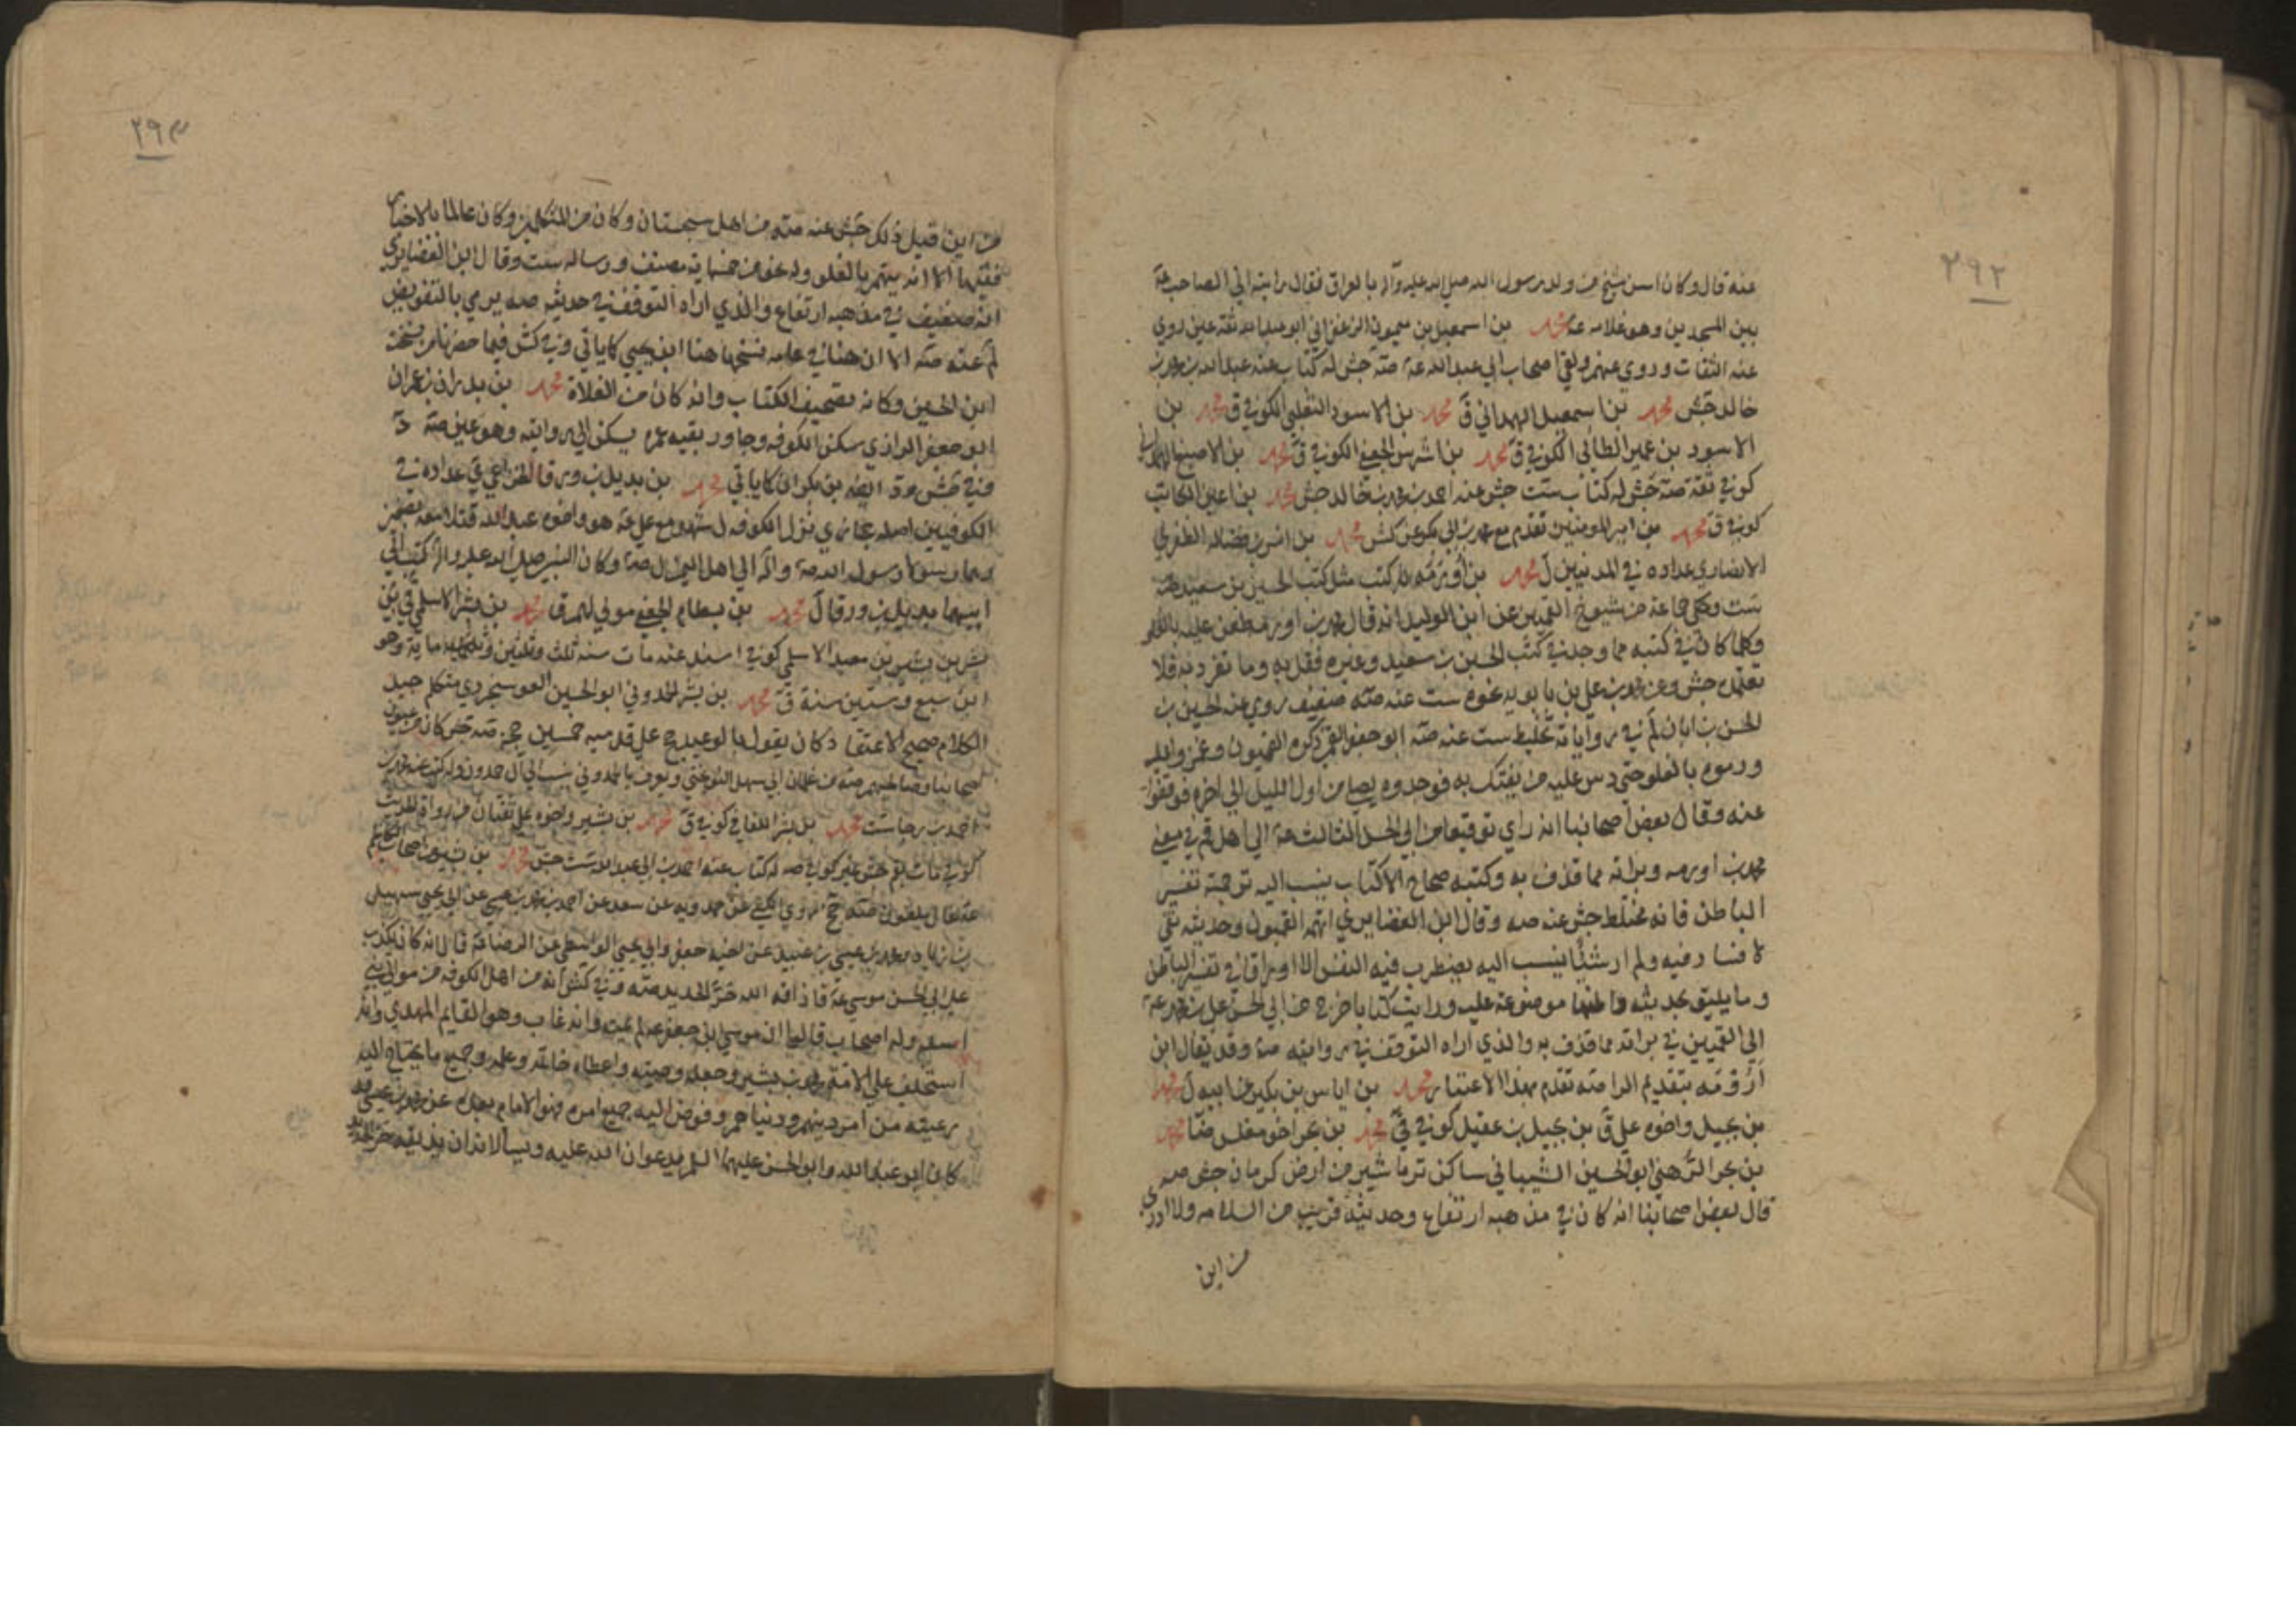 ٢٩٢
عنه قال وكان اسن شيخ من ولد رسول الله صلى الله عليه وآله بالعراق فقال رايته اي الصاحب عة
بين المسجدين وهو غلام عة محمد بن اسمعيل بن ميمون الزعفراني ابو عبد الله ثقة عين روى
عنه الثقات وروي عنهم ولقى اصحاب ابي عبد الله عة صة جش له كتاب عنه عبد الله بن محمد بن
خالد جش محمد بن اسمعيل الهمداني ق محمد بن الاسود التغلبي الكوفي ق محمد بن
الاسود بن عمير الطائي الكوفي ق محمد بن اشرس الجعفي الكوفي ق محمد بن الاصبغ الهمداني
كوفي ثقة صة جش له كتاب ست جش عنه احمد بن محمد بن خالد جش محمد بن اعين الكاتب
كوفي ق محمد بن امير المومنين تقدم مع محمد بن ابي بكر عن كش محمد بن انس بن فضالة الظفري
الانصاري عداده في المدنيين ل محمد بن أورمه له كتب مثل كتب الحسين بن سعيد
ست وحكى جماعة من شيوخ القميين عن ابن الوليد انه قال محمد بن اورمه طعن عليه بالغلو
وكلما كان في كتبه مما وجد في كتب الحسين بن سعيد وغيره فقل به وما تفرد به فلا
تعتمده جش وعن محمد بن علي بن بابويه نحوه ست عنه صة ضعيف روي عنه الحسين بن
الحسن بن ابان لم في رواياته تخليط ست عنه صة ابو جعفر القمي ذكره القميون وغمزوا عليه
ورموه بالغلو حتى دس عليه من يفتك به فوجدوه يصلي من اول الليل الى اخره فتوقفوا
عنه وقال بعض اصحابنا انه راي توقيعا من ابي الحسن الثالث عة الى اهل قم في معنى
محمد بن اورمه وبراته مما قذف به وكتبه صحاح الا كتاب ينسب اليه ترجمته تفسير
الباطن فانه مختلط جش عنه صه وقال ابن الغضايري اتهمه القميون وحديثه نقي
لا فساد فيه ولم ار شيئا ينسب اليه يضطرب فيه النفس الا اوراقا في تفسير الباطن
وما يليق بحديثه واظنها موضوعة عليه ورايت كتابا خرج من ابي الحسن علي بن محمد عة
الى القميين في براته مما قذف به والذي اراه التوقف في روايته صة وقد يقال ابن
أرومه بتقديم الرا صة تقدم بهذا الاعتبار محمد بن اياس بن بكير عن ابيه ل محمد
بن بجيل واخوه علي ق بن بجيل بن عقيل كوفي ق محمد بن بحر اخو مغلس ضا محمد
بن بحر الرهني ابو الحسين الشيباني ساكن ترماشير من ارض كرمان جش صه
قال بعض اصحابنا انه كان في مذهبه ارتفاع وحديثه قريب من السلامه ولا ادري
من اين
٢٩٣
من اين قيل ذلك جش عنه صة من اهل سجستان وكان من المتكلمين وكان عالما بالاخبار
فقيها الا انه يتهم بالغلو وله نحو من خمسماية مصنف ورساله ست وقال ابن الغضايري
انه ضعيف في مذهبه ارتفاع والذي اراه التوقف في حديثه صه يرمي بالتفويض
لم عنه صة الا ان هنا في عامه نسخها هنا ابن يحيى كاياتي وفي كش فيما حضرنا من نسخه
ابن الحسين وكانه تصحيف الكتاب وانه كان من الغلاة محمد بن بدران بن عمران
ابو جعفر الرازي سكن الكوفه وجاور بقيه عمره يسكن الى روايته وهو عين صة
وفي جش ود ايضه بن بكران كاياتي محمد بن بديل بن ورقا الخزاعي عداده في
الكوفيين اصله حجازي نزل الكوفه ل شهد مع علي عة هو واخوه عبد الله قتلا معه بصفين
وهما رسولا رسول الله صة وآله الى اهل اليمن ل صة وكان النبي صلى الله عليه واله كتب الى
ابيهما بديل بن ورقا ل محمد بن بسطام الجعفي مولى لهم ق محمد بن بشر الاسلمي ق بن
بشر بن بشير بن معبد الاسلمي كوفي اسند عنه مات سنه ثلث وثلثين ماية وهو
ابن سبع وستين سنة ق محمد بن بشر الحمدوني ابو الحسين السوسنجردي متكلم جيد
الكلام صحيح الاعتقاد كان يقول بالوعيد حج على قدميه خمسين حجه صة جش كان من عيون
اصحابنا وصالحيهم صة من غلمان ابي سهل النوبختي ويعرف بالحمدوني ينسب الى آل حمدون وله كتب عنه محمد بن
احمد بن رجا ست محمد بن بشر اللفافي كوفي ق محمد بن بشير واخوه علي ثقتان من رواة الحديث
كوفي مات بقم جش غير كوفي صه له كتاب عنه احمد بن ابي عبد الله ست جش محمد بن بشير من اصحاب الكاظم
عة غال ملعون صة جخ روي الكشي عن حمدويه عن سعد عن احمد بن محمد بن عيسى عن ابي يحيى سهيل
بن زياد ومحمد بن عيسى بن عبيد عن اخيه جعفر وابي يحيى الواسطي عن الرضا عة قال انه كان يكذب
على ابي الحسن موسى عة فاذاقه الله حر الحديد صة وفي كش انه من اهل الكوفه من موالي بني
اسد وله اصحاب قالوا ان موسى بن جعفر عة لم يمت وانه غاب وهو القايم المهدي وانه
استخلف على الامة محمد بن بشير وجعله وصيه واعطاه خاتمه وعلمه وجميع ما يحتاج اليه
رعيته من امر دينهم ودنياهم وفوض اليه جميع امره فهو الامام بعده عن محمد بن عيسى
كان ابو عبد الله وابو الحسن عليهما السلم يدعوان الله عليه ويسالانه ان يذيقه حر الحديد